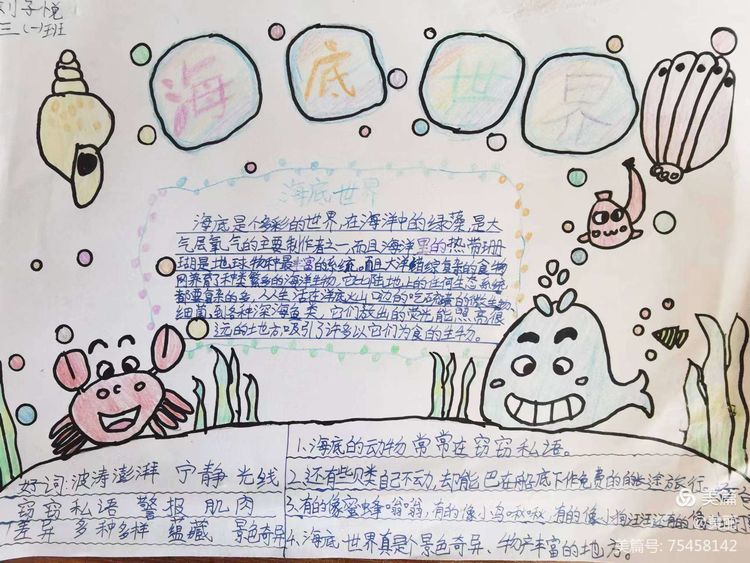 刘子悦
三(一)班
海底世界
海底世界
海底是个多彩的世界,在海洋中的绿藻,是大
气层氧气的主要制作者之一,而且海洋里的热带珊
瑚是地球物种最丰富的系统。而且大洋错综复杂的食物
网养育了种类繁多的海洋生物,它比陆地上的任何生态系统
都要复杂的多,从生活在洋底火山口边的吃硫磺的微生物、
细菌,到各种深海鱼类,它们放出的荧光能够离很
远的地方吸引了许多以它们为食的生物。
好词:波涛澎湃 宁静 光线
窃窃私语 警报 肌肉
差异 多种多样 蕴藏 景色奇异
1.海底的动物常常在窃窃私语。
2.还有些贝类自己不动,却能巴在船底下作免费的长途旅行。
3.有的像蜜蜂嗡嗡,有的像小鸟啾啾,有的像小狗汪汪,还有的像
4.海底世界真是个景色奇异、物产丰富的地方。
美篇
美篇号: 75458142